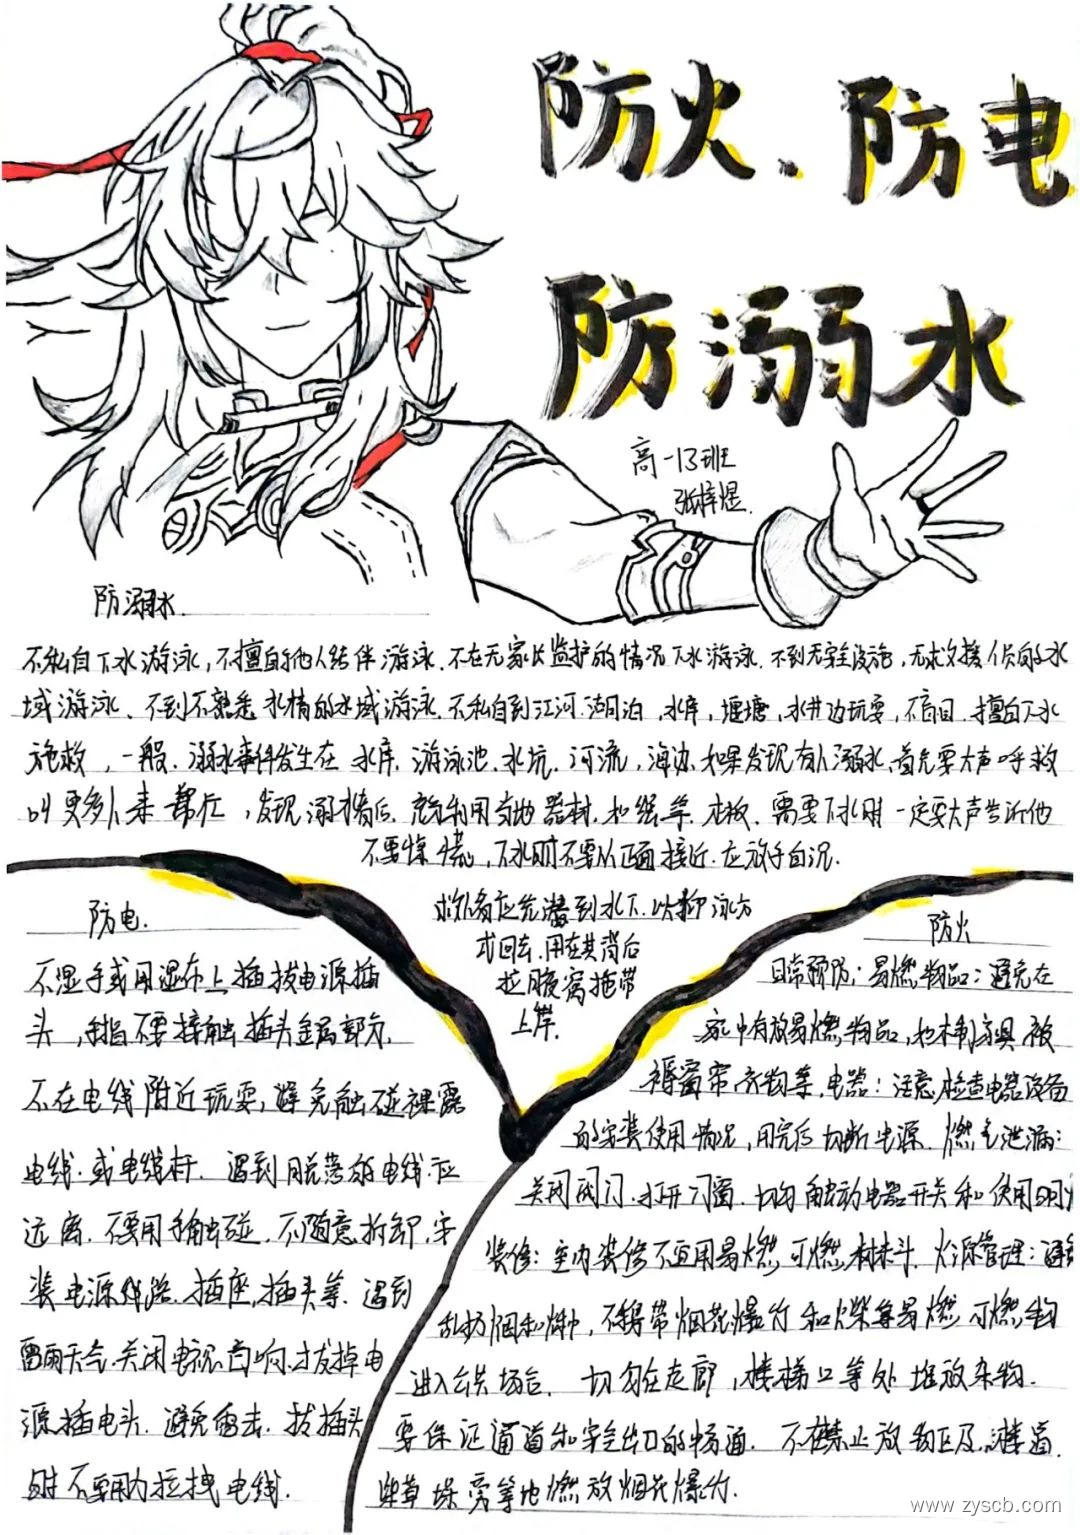 防火、防电
防溺水
高一13班
张梓煜
防溺水
不私自下水游泳,不擅自与他人结伴游泳.不在无家长监护的情况下水游泳.不到无安全设施,无救援人员的水
域游泳、不到不熟悉水情的水域游泳.不私自到江河.湖泊.水库,堰塘,水井边玩耍,不盲目.擅自下水
施救,一般.溺水事件发生在水库.游泳池.水坑.河流,海边.如果发现有人溺水,首先要大声呼救
叫更多人来帮忙,发现溺水者后.充分利用当地器材.如绳.竿.木板.需要下水时一定要大声告诉他
不要惊慌,下水时不要从正面接近.在放手自沉.
救治者应先潜到水下.以仰泳方
式回去.用在其背后
拉腋窝拖带
上岸.
防电.
不湿手或用湿布上插拔电源插
头,手指不要接触插头金属部分.
不在电线附近玩耍,避免触碰裸露
电线.或电线杆.遇到脱落的电线.应
远离.不要用手触碰.不随意拆卸,安
装电源线路.插座,插头等.遇到
雷雨天气.关闭电视音响.拔掉电
源插电头.避免雷击.拔插头
时不要用力拉拽电线.
防火
日常预防:易燃物品:避免在
家中存放易燃物品,如木制家具被
褥窗帘衣物等,电器:注意检查电器设备
的安装使用情况,用完后切断电源.燃气泄漏:
关闭阀门.打开门窗.切勿触动电器开关和使用明火
装修:室内装修不宜用易燃,可燃,材料.火源管理:避免
乱扔烟和火种,不得带烟花爆竹和火柴等易燃可燃物
进入公共场合.切勿在走廊,楼梯口等处堆放杂物.
要保证通道和安全出口的畅通.不在禁止放物区及楼道.
柴草垛旁等地燃放烟花爆竹.
www.zyscb.com